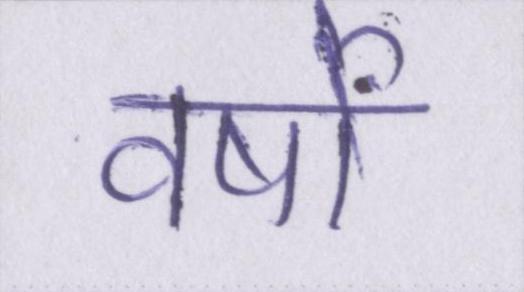 वर्षों